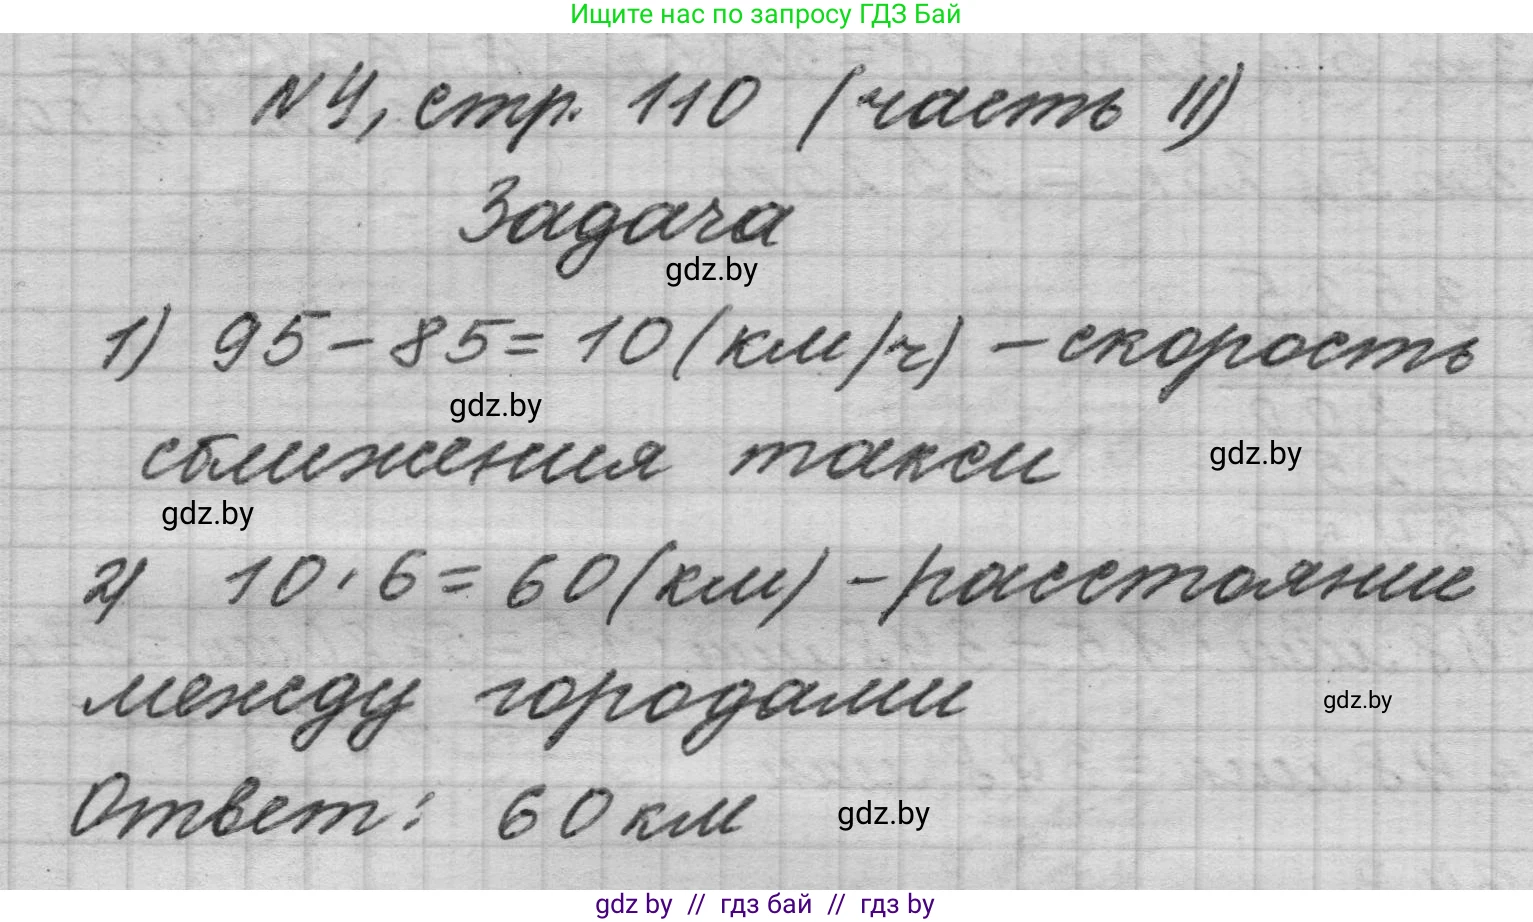 Ищите нас по запросу ГДЗ Бай
№4, стр. 110 (часть II)
Задача
gdz.by
1) 95-85=10(км/ч) - скорость
gdz.by
сближения такси
gdz.by
gdz.by
2) 10·6=60(км) - расстояние
между городами
gdz.by
Ответ: 60 км
gdz.by
gdz by // гдз бай // гдз by